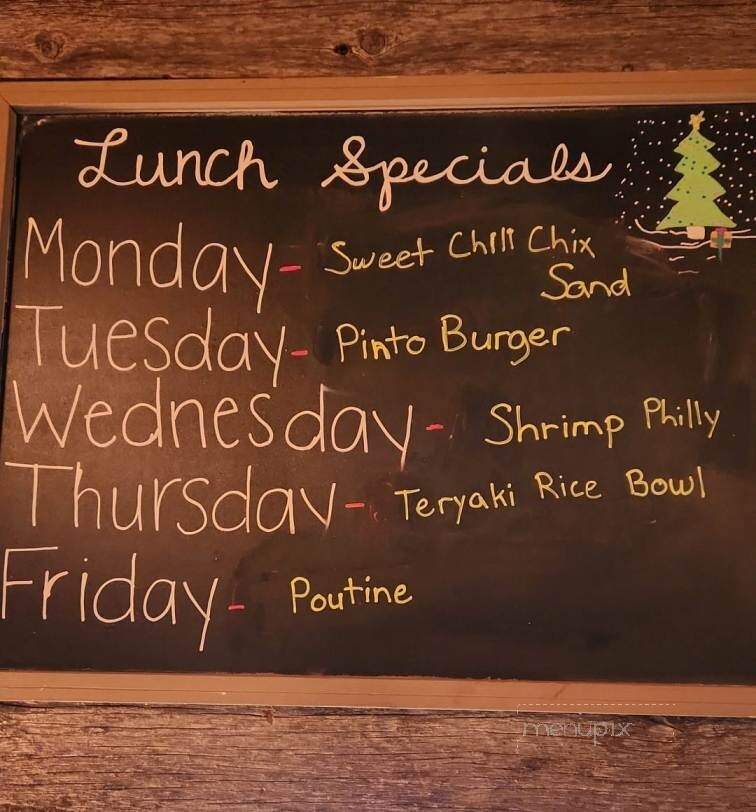 Lunch Specials
Monday- Sweet Chili Chix
Sand
Tuesday- Pinto Burger
Wednesday- Shrimp Philly
Thursday- Teryaki Rice Bowl
Friday- Poutine
menupix